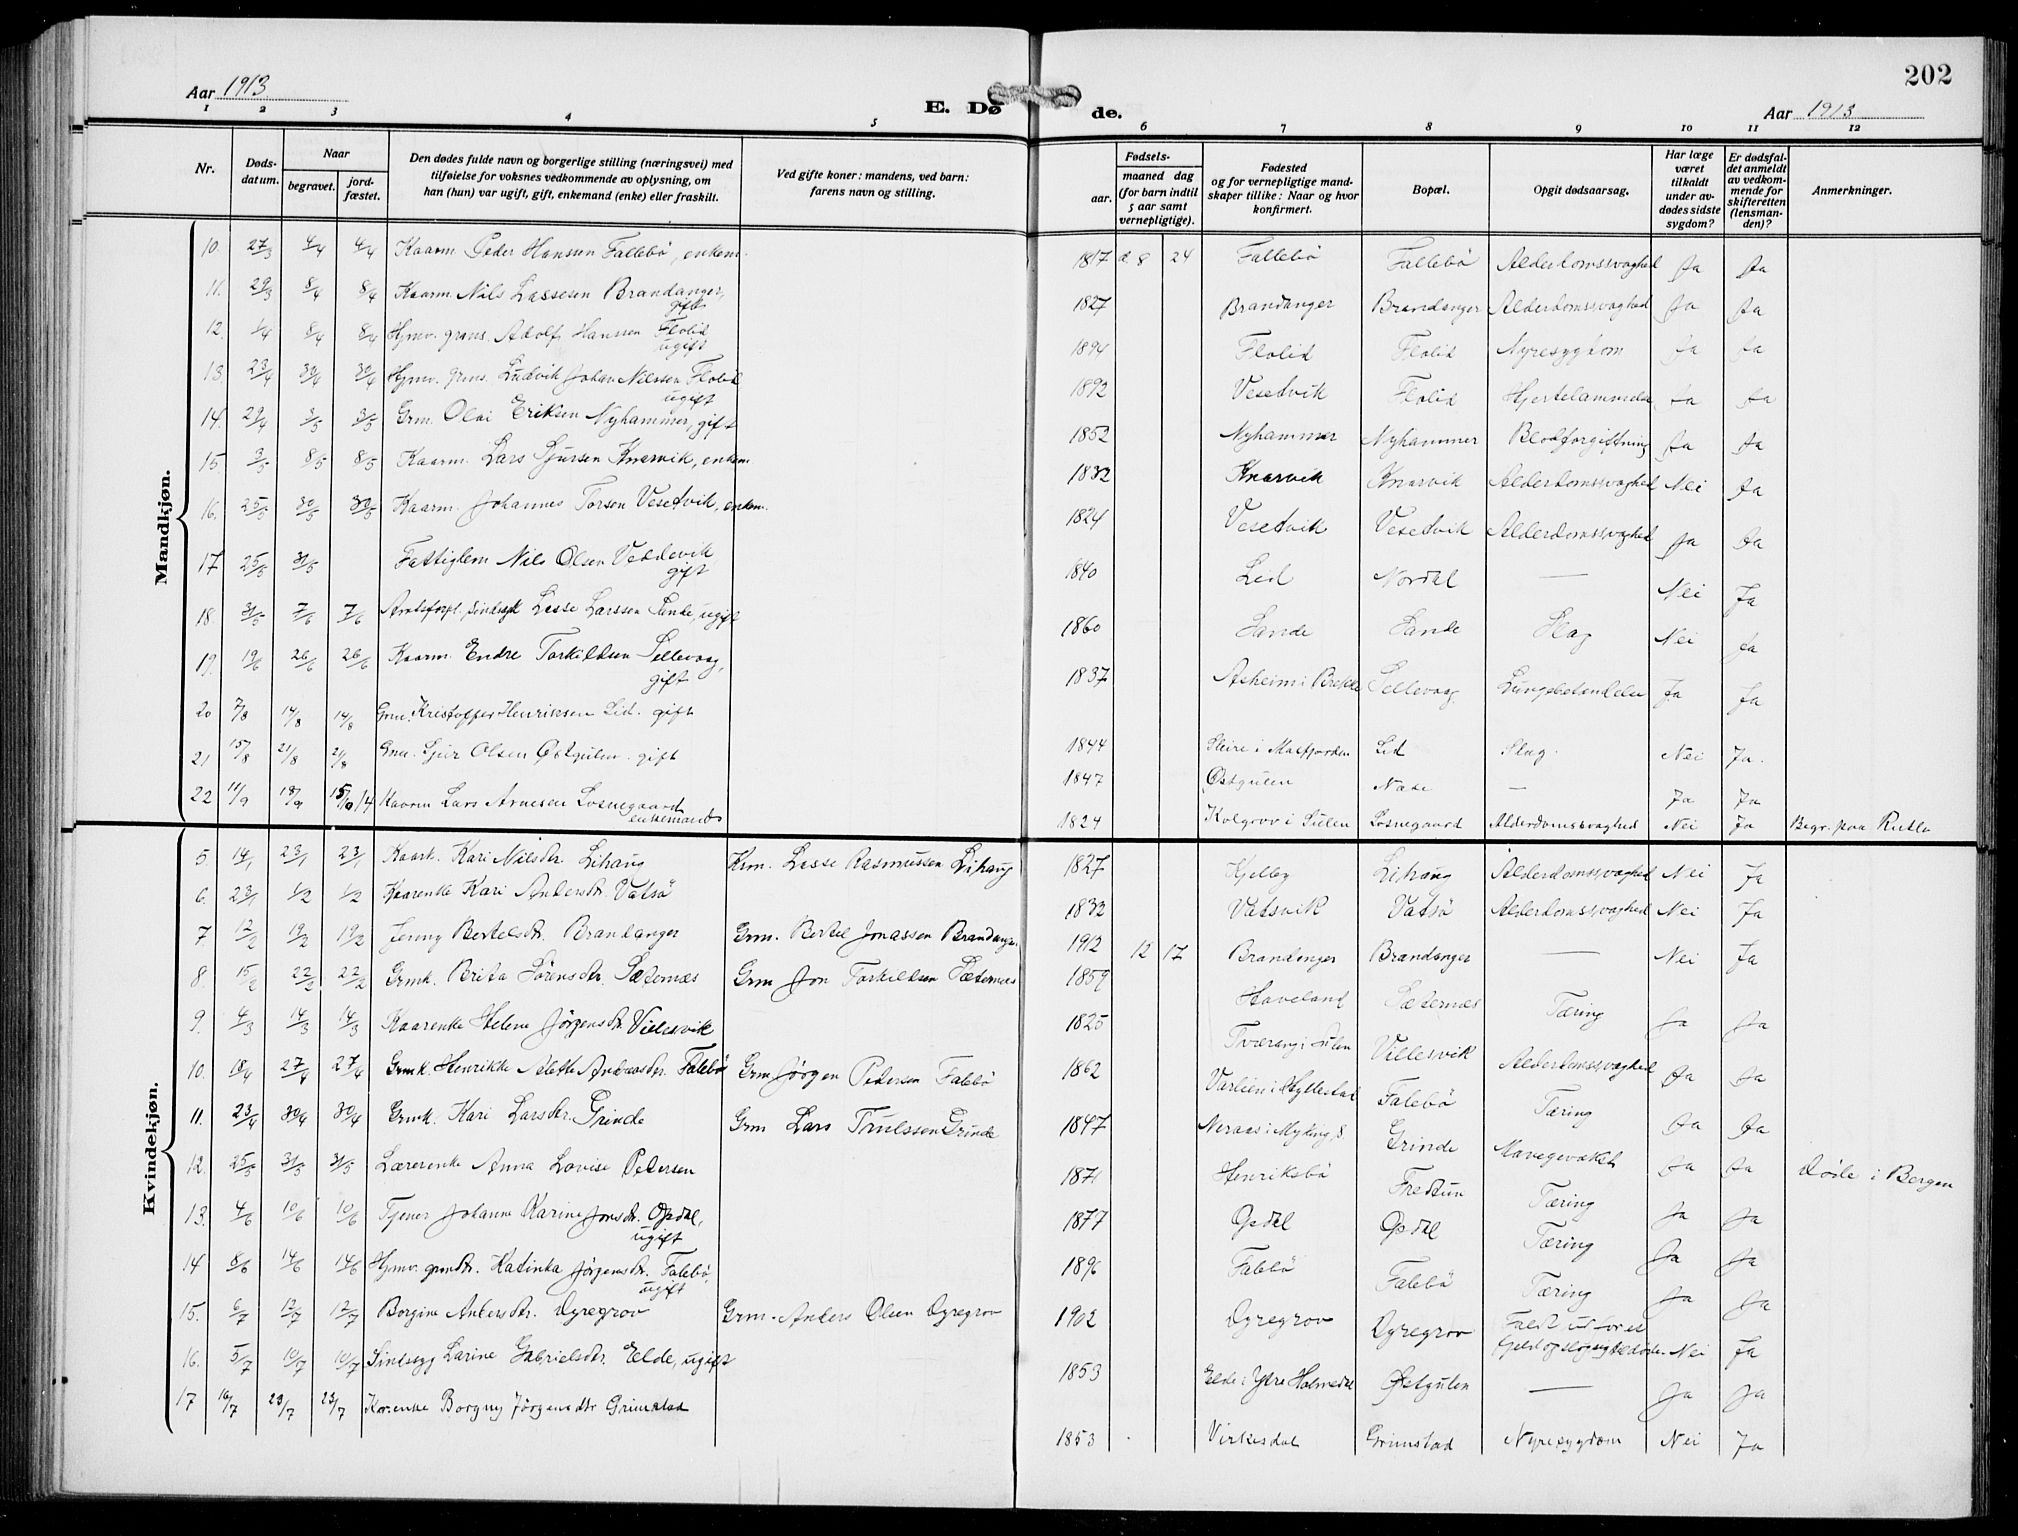 202
Aar 1913
Aar 1913
E. Dø
de.
1 2 3 4 5 6 7 8 9 10 11 12
Nr.
Døds-
datum.
Naar
begravet.
jord-
fæstet.
Den dødes fulde navn og borgerlige stilling (næringsvei) med
tilføielse for voksnes vedkommende av oplysning, om
han (hun) var ugift, gift, enkemand (enke) eller fraskilt.
Ved gifte koner: mandens, ved barn:
farens navn og stilling.
Fødsels-
aar.
maaned dag
(for barn indtil
5 aar samt
vernepligtige).
Fødested
og for vernepligtige mand-
skaper tillike: Naar og hvor
konfirmert.
Bopæl.
Opgit dødsaarsag.
Har læge
været
tilkaldt
under av-
dødes sidste
sygdom?
Er dødsfal-
det anmeldt
av vedkom-
mende for
skifteretten
(lensman-
den)?
Anmerkninger.
Mandkjøn.
10. 27/3 4/4 4/4 Kaarm. Peder Hansen Fallebö, enkem. 1817 d. 8 24 Fallebö Fallebö Alderdomssvaghed Ja Ja
11. 29/3 8/4 8/4 Kaarm. Nils Lassesen Brandanger, gift 1827 Brandanger Brandanger Alderdomssvaghed Ja Ja
12. 1/4 8/4 8/4 Hjmv. grms. Adolf Hanssen Flolid ugift 1894 Flolid Flolid Nyresygdom Ja Ja
13. 23/4 30/4 30/4 Hjmv. grms. Ludvik Johan Nilssen Flolid ugift 1892 Vesetvik Flolid Hjertelammelse Ja Ja
14. 29/4 3/5 3/5 Grm. Olai Eriksen Nyhammer, gift 1852 Nyhammer Nyhammer Blodforgiftning Ja Ja
15. 3/5 8/5 8/5 Kaarm. Lars Sjursen Knarvik, enkem. 1832 Knarvik Knarvik Alderdomssvaghed Nei Ja
16. 25/5 30/5 30/5 Kaarm. Johannes Torsen Vesetvik, enkem. 1824 Vesetvik Vesetvik Alderdomssvaghed Ja Ja
17 25/5 31/5 Fattiglem Nils Olsen Veddevik gift 1840 Lid Nordal — Nei Ja
18. 31/5 7/6 7/6 Amtsforpl. sindssyk Lasse Larssen Sande, ugift 1860 Sande Sande Slag Nei Ja
19. 19/6 26/6 26/6 Kaarm. Endre Torkildsen Sellevaag, gift 1837 Asheim i Brekke Sellevaag. Lungebetendelse Ja Ja
20 7/8 14/8 14/8 Grm. Kristoffer Henriksen Lid. gift 1844 Sleire i Masfjorden Lid Slag. Nei Ja.
21 15/8 21/8 21/8 Grm. Sjur Olsen Östgulen. gift 1847 Östgulen Nese — Ja Ja
22 11/9 18/9 15/9 14 Kaarm Lars Arnesen Losnegaard enkemand 1824 Kolgrov i Sulen Losnegaard Alderdomssvaghed Nei Ja Begr. paa Rutle
Kvindekjøn.
5. 14/1 23/1 23/1 Kaark. Kari Nilsdtr. Lihaug Krm. Lasse Rasmussen Lihaug 1827 Kjelby Lihaug Alderdomssvaghed Nei Ja
6. 23/1 1/2 1/2 Kaarenke Kari Andersdtr. Vatsö 1832 Vatsvik Vatsö Alderdomssvaghed Nei Ja
7 12/2 19/2 19/2 Jenny Bertelsdtr. Brandanger Grm. Bertel Jonassen Brandanger 1912 12 17 Brandanger Brandanger — Nei Ja
8. 15/2 22/2 22/2 Grmk. Brita Sörensdtr. Sæternæs Grm Jon Torkildsen Sæternæs 1859 Haveland Sæternæs Tæring Ja Ja
9. 4/3 14/3 14/3 Kaarenke Helene Jörgensdtr. Villesvik 1825 Tværang i Sulen Villesvik Alderdomssvaghed Ja Ja
10. 18/4 27/4 27/4 Grmk. Henrikke Alette Andreasdtr. Falebö Grm Jörgen Pedersen Falebö 1862 Varlien i Hyllestad Falebö Tæring Ja Ja
11. 23/4 30/4 30/4 Grmk. Kari Larsdtr. Grinde Grm Lars Trulssen Grinde 1847 Neraas i Myking, S. Grinde Mavegevækst Ja Ja
12. 25/5 31/5 31/5 Lærerenke Anna Lovise Petersen 1871 Henriksbö Fredtun Tæring Ja Ja Döde i Bergen
13. 4/6 10/6 10/6 Tjener Johanne Karine Jonsdtr. Opdal, ugift 1877 Opdal Opdal Tæring Ja Ja
14 8/6 14/6 14/6 Hjmv. grmdtr. Katinka Jörgensdtr. Falebö, ugift 1896 Falebö Falebö Tæring Ja Ja
15. 6/7 12/7 12/7 Borgine Andersdtr. Dyregrov Grm. Anders Olsen Dyregrov 1902 Dyregrov Dyregrov Faldt ud for et fjeld og slog sig tildöde. Nei Ja
16. 5/7 10/7 10/7 Sindssyg Larine Gabrielsdtr. Elde, ugift 1853 Elde i Ytre Holmedal Östgulen — Ja Ja
17 16/7 23/7 23/7 Kar.enke Borgny Jörgensdtr Grimstad 1853 Virkesdal Grimstad Nyresygdom Nei Ja